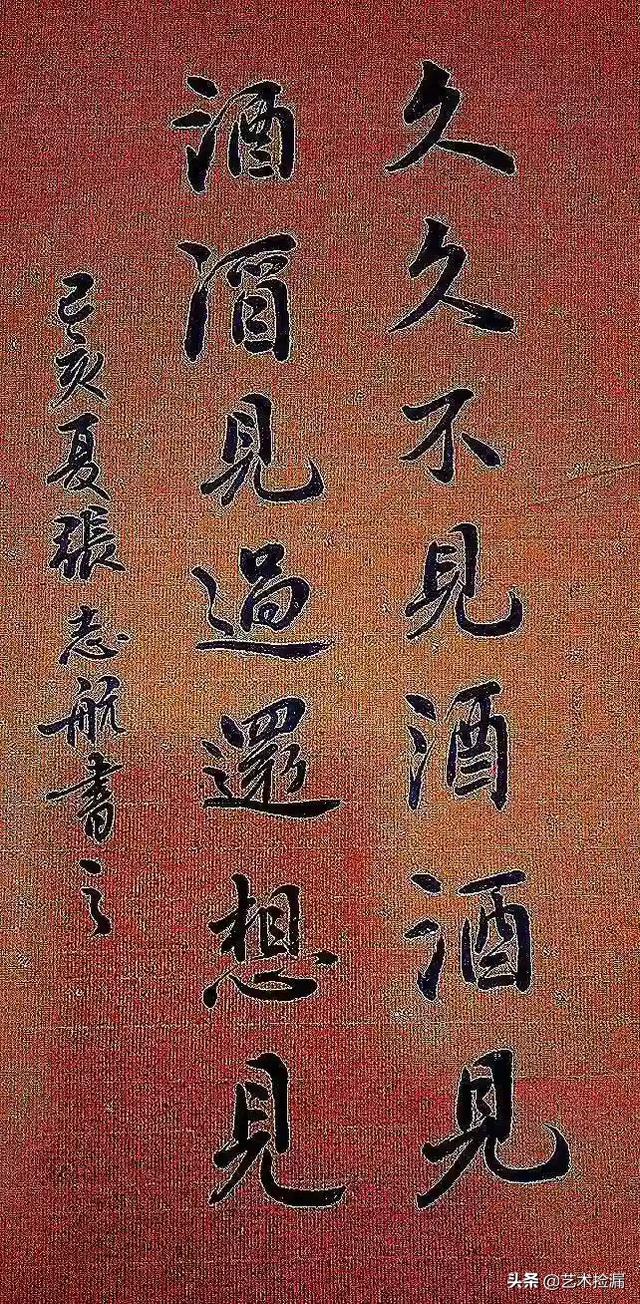 久久不見酒酒見
酒酒見過還想見
己亥夏張志航書之
头条 @艺术捡漏